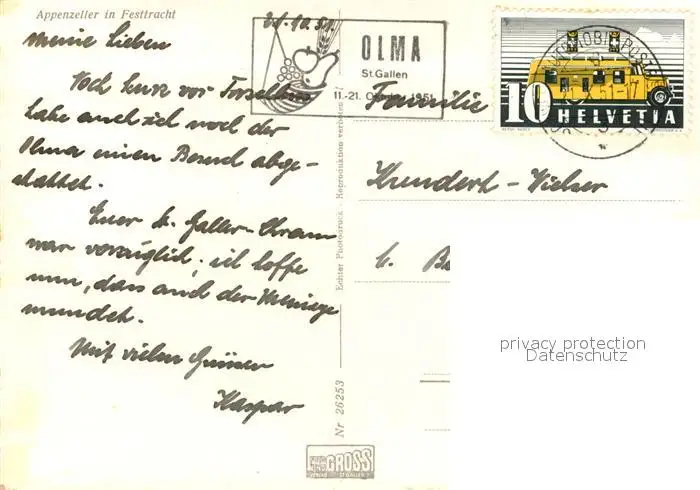 Appenzeller in Festtracht
21.10.51
Meine Lieben
Noch kurz vor Torschluss
habe auch ich noch der
Olma einen Besuch abge-
stattet.
Euer St. Galler-Chram
war vorzüglich, ich hoffe
nun, dass auch der Meinige
mundet.
Mit vielen Grüssen
Kaspar
OLMA
St. Gallen
11.-21. Oktober 1951
10 HELVETIA
Familie
Kundert-Wielser
b. B
Echter Photodruck - Reproduktion verboten
Nr 26253
GROSS
privacy protection
Datenschutz